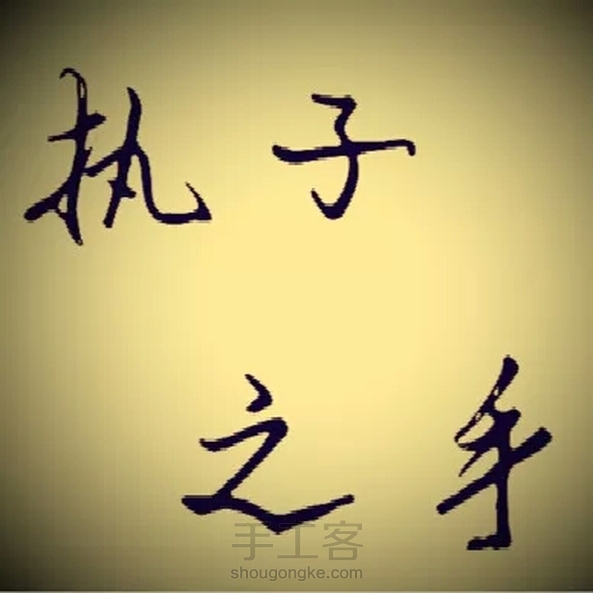 执子
之手
手工客
shougongke.com